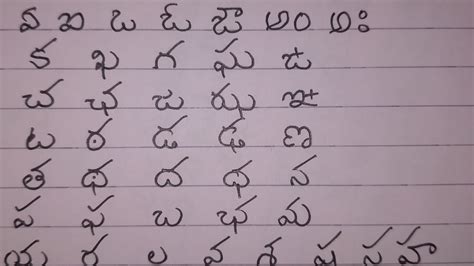 ఏ ఐ ఒ ఓ ఔ అం అః
క ఖ గ ఘ ఙ
చ ఛ జ ఝ ఞ
ట ఠ డ ఢ ణ
త థ ద ధ న
ప ఫ బ భ మ
య ర ల వ శ ష స హ